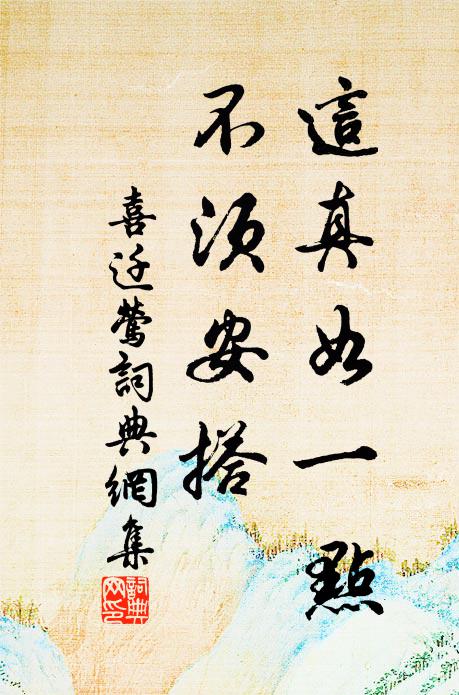 這真如一點
不須安搭
喜迁鶯詞典網集
詞典